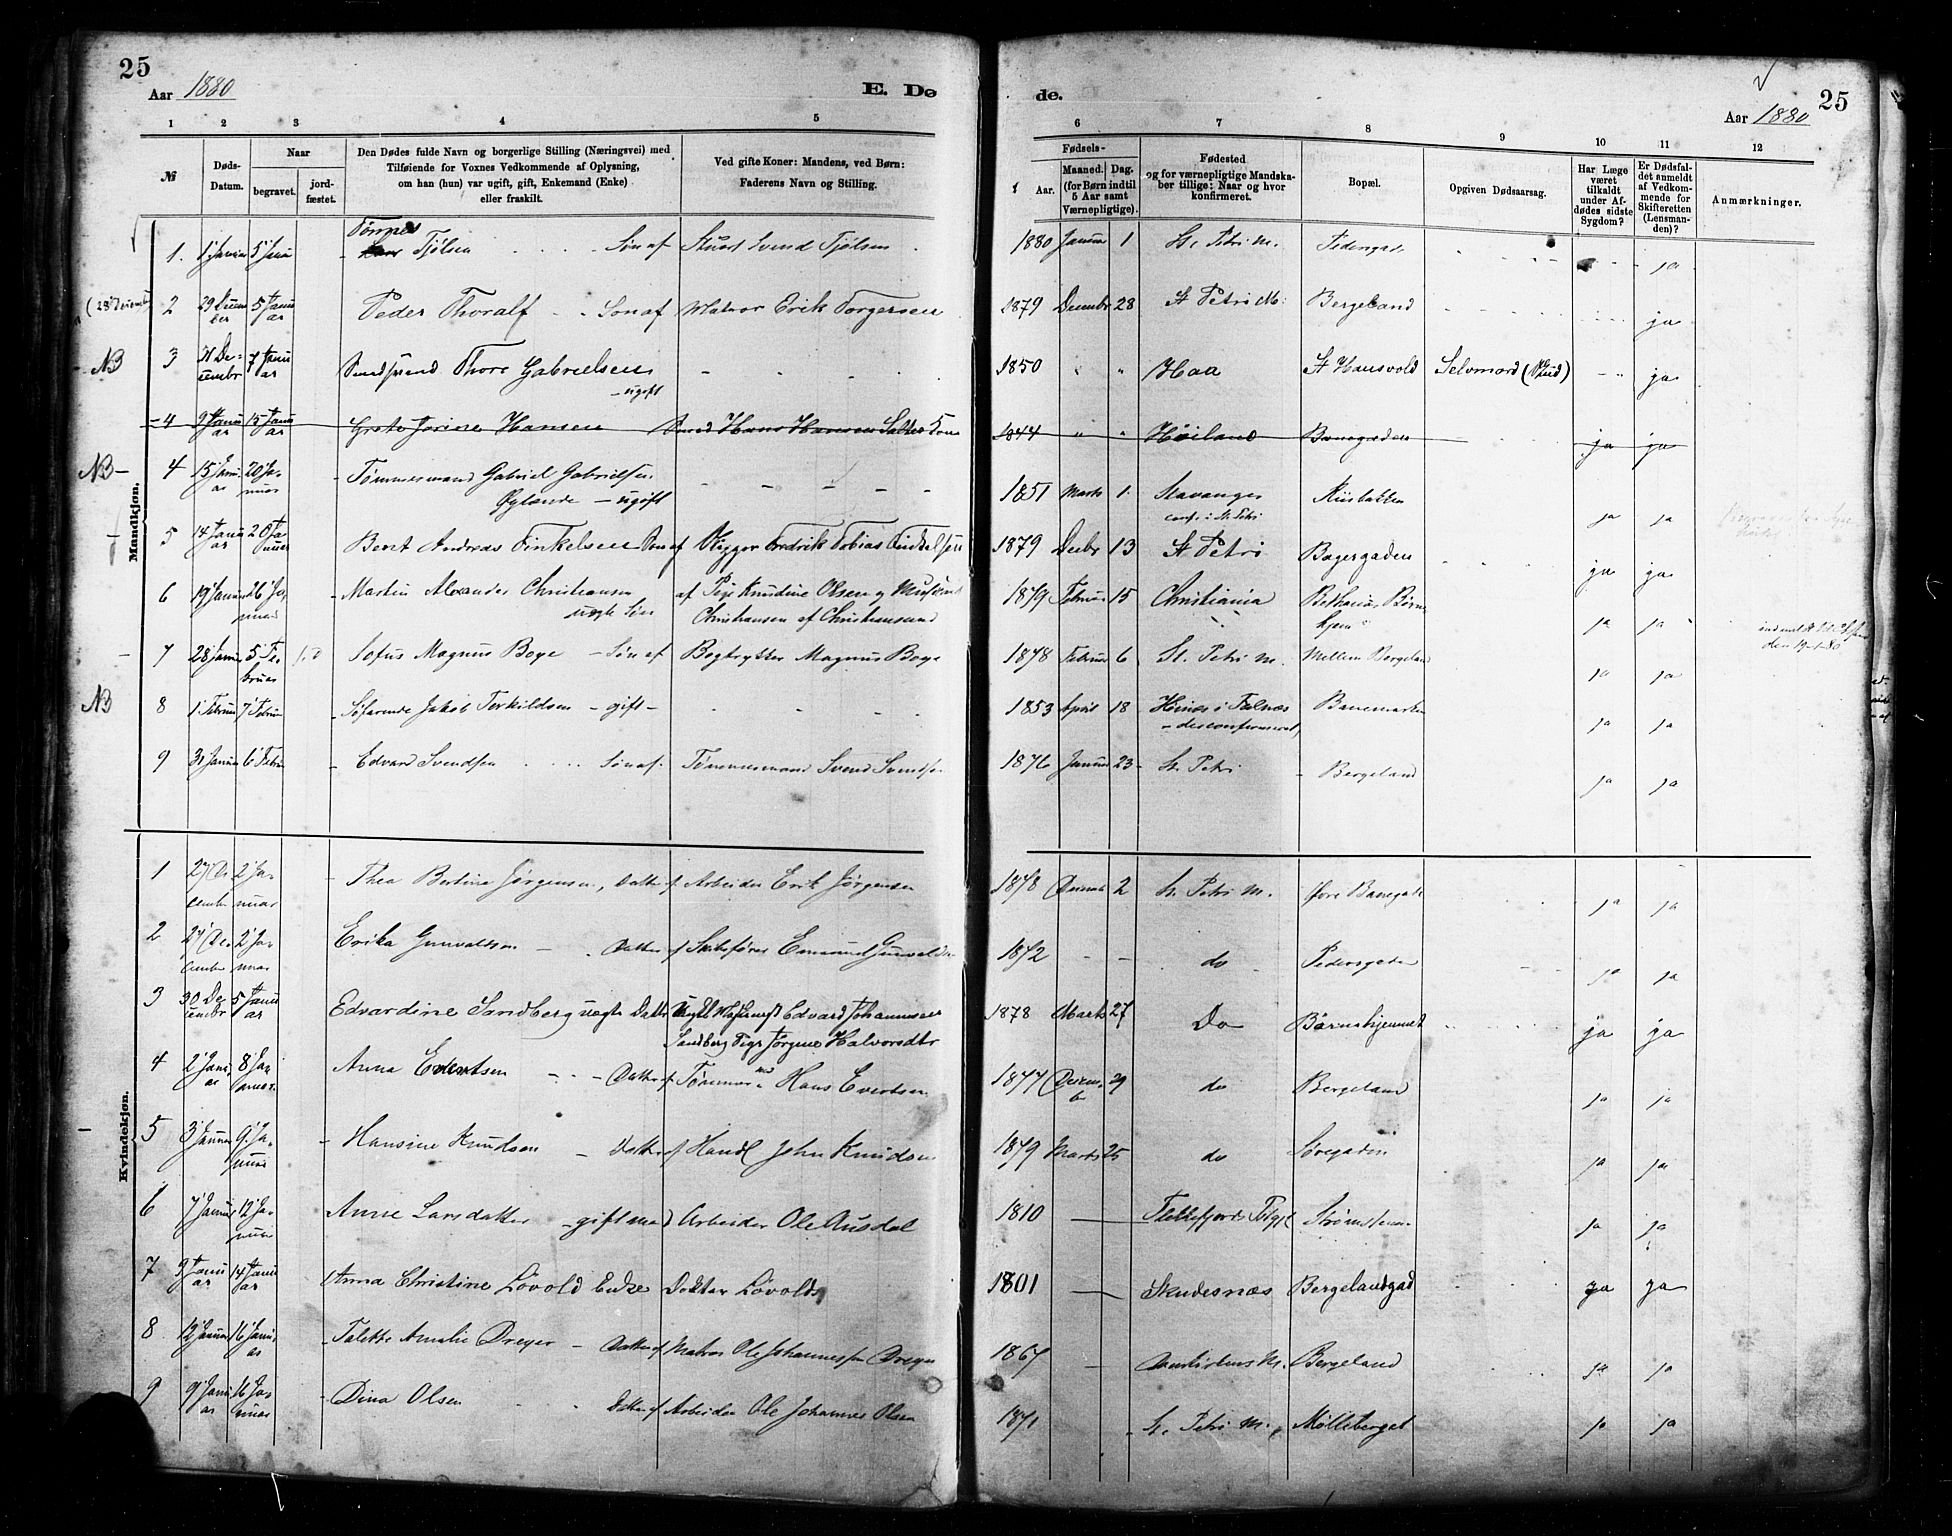 25
Aar 1880
E. Dø
de.
25
Aar 1880
1 2 3 4 5
6 7 8 9 10 11 12
№
Døds-
Datum.
Naar
begravet.
jord-
fæstet.
Den Dødes fulde Navn og borgerlige Stilling (Næringsvei) med
Tilføiende for Voxnes Vedkommende af Oplysning,
om han (hun) var ugift, gift, Enkemand (Enke)
eller fraskilt.
Ved gifte Koner: Mandens, ved Børn:
Faderens Navn og Stilling.
Fødsels-
Aar.
Maaned. Dag.
(for Børn indtil
5 Aar samt
Værnepligtige).
Fødested
og for værnepligtige Mandska-
ber tillige: Naar og hvor
konfirmeret.
Bopæl.
Opgiven Dødsaarsag.
Har Læge
været
tilkaldt
under Af-
dødes sidste
Sygdom?
Er Dødsfal-
det anmeldt
af Vedkom-
mende for
Skifteretten
(Lensman-
den)?
Anmærkninger.
Mandkjøn.
1. 1 Januar 5 Januar Tjølsen Søn af Svend Tjølsen 1880 Januar 1 St. Petri M. Pedersgade ja
2 29 December 5 Januar Peder Thoralf Søn af Matros Erik Torgersen 1879 Decembr 28 St Petri M. Bergeland ja
NB 3 31 Decembr 7 Januar Thore Gabrielsen
- ugift 1850 " " Haa St Hansvold Selvmord ja
4 9 Januar 15 Januar Grete Jorine Hansen Hans Hansen 1844 " " Høiland Banegaden ja ja
NB 4 15 Januar 20 Januar Tømmermand Gabriel Gabrielsen
- ugift 1851 Marts 1 Stavanger
conf. i St. Petri ja ja
5 14 Januar 20 Januar Bent Andreas Finkelsen Søn af Fredrik Tobias Finkelsen 1879 Decbr 13 St Petri Bagergaden ja ja
6 19 Januar 26 Januar Martin Alexander Christiansen
uægte Søn af Pige Knudine Olsen og
Christiansen af Christiansund 1879 Februar 15 Christiania Bethanias Børne
hjem ja ja
7 28 Januar 5 Februar Sofus Magnus Boye - Søn af Bogtrykker Magnus Boye 1878 Februar 6 St. Petri M. Mellem Bergeland ja ja
NB 8 1 Februar 7 Februar Søfarende Jakob Terkildsen - gift - 1853 April 18 Falnæs Banemarken ja ja
9 31 Januar 6 Februar Edvard Svendsen Søn af Tømmermand Svend Svendsen 1876 Januar 23 St. Petri Bergeland ja ja
Kvindekjøn.
1 27 December 2 Januar Thea Bertine Jørgensen, Datter af Arbeider Erik Jørgensen 1878 2 St. Petri M. Øvre Banegade ja ja
2 27 December 2 Januar Erika Gunvaldsen Datter af Skibsfører Emanuel Gunvaldsen 1872 - - do Pedersgaden ja ja
3 30 Decembr 5 Januar Edvardine Sandberg uægte Datter Edvard Johannesen
Sandberg Pige Jørgine Halvorsdtr 1878 Marts 27 Do Børnehjemmet ja ja
4 2 Januar 8 Januar Anna Evertsen - Datter af Tømmermd Hans Evertsen 1877 29 do Bergeland ja ja
5 3 Januar 9 Januar Hansine Knudsen - Datter af Handl John Knudsen 1879 Marts 25 do Søregaden ja ja
6 7 Januar 12 Januar Anne Larsdatter - gift med Arbeider Ole Ausdal 1810 - Flekkefjords Pstgj. ja ja
7 9 Januar 14 Januar Anna Christine Løvold Enke Doktor Løvolds 1801 - Skudesnæs Bergelandgad ja ja
8 12 Januar 16 Januar Talette Amalie Dreyer - Datter af Matros Ole Johannessen Dreyer 1867 - Bergeland ja ja
9 9 Januar 16 Januar Dina Olsen Datter af Arbeider Ole Johannes Olsen 1871 St. Petri M. Mølleberget ja ja